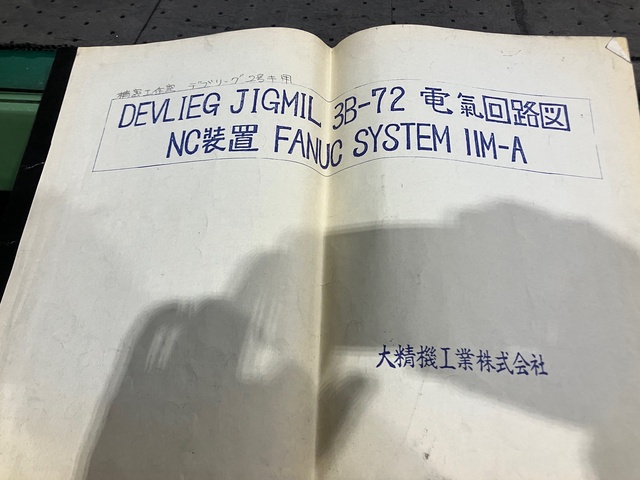 精密工作室 デブリーグ 2号キ用
DEVLIEG JIGMIL 3B-72 電氣回路図
NC装置 FANUC SYSTEM 11M-A
大精機工業株式会社